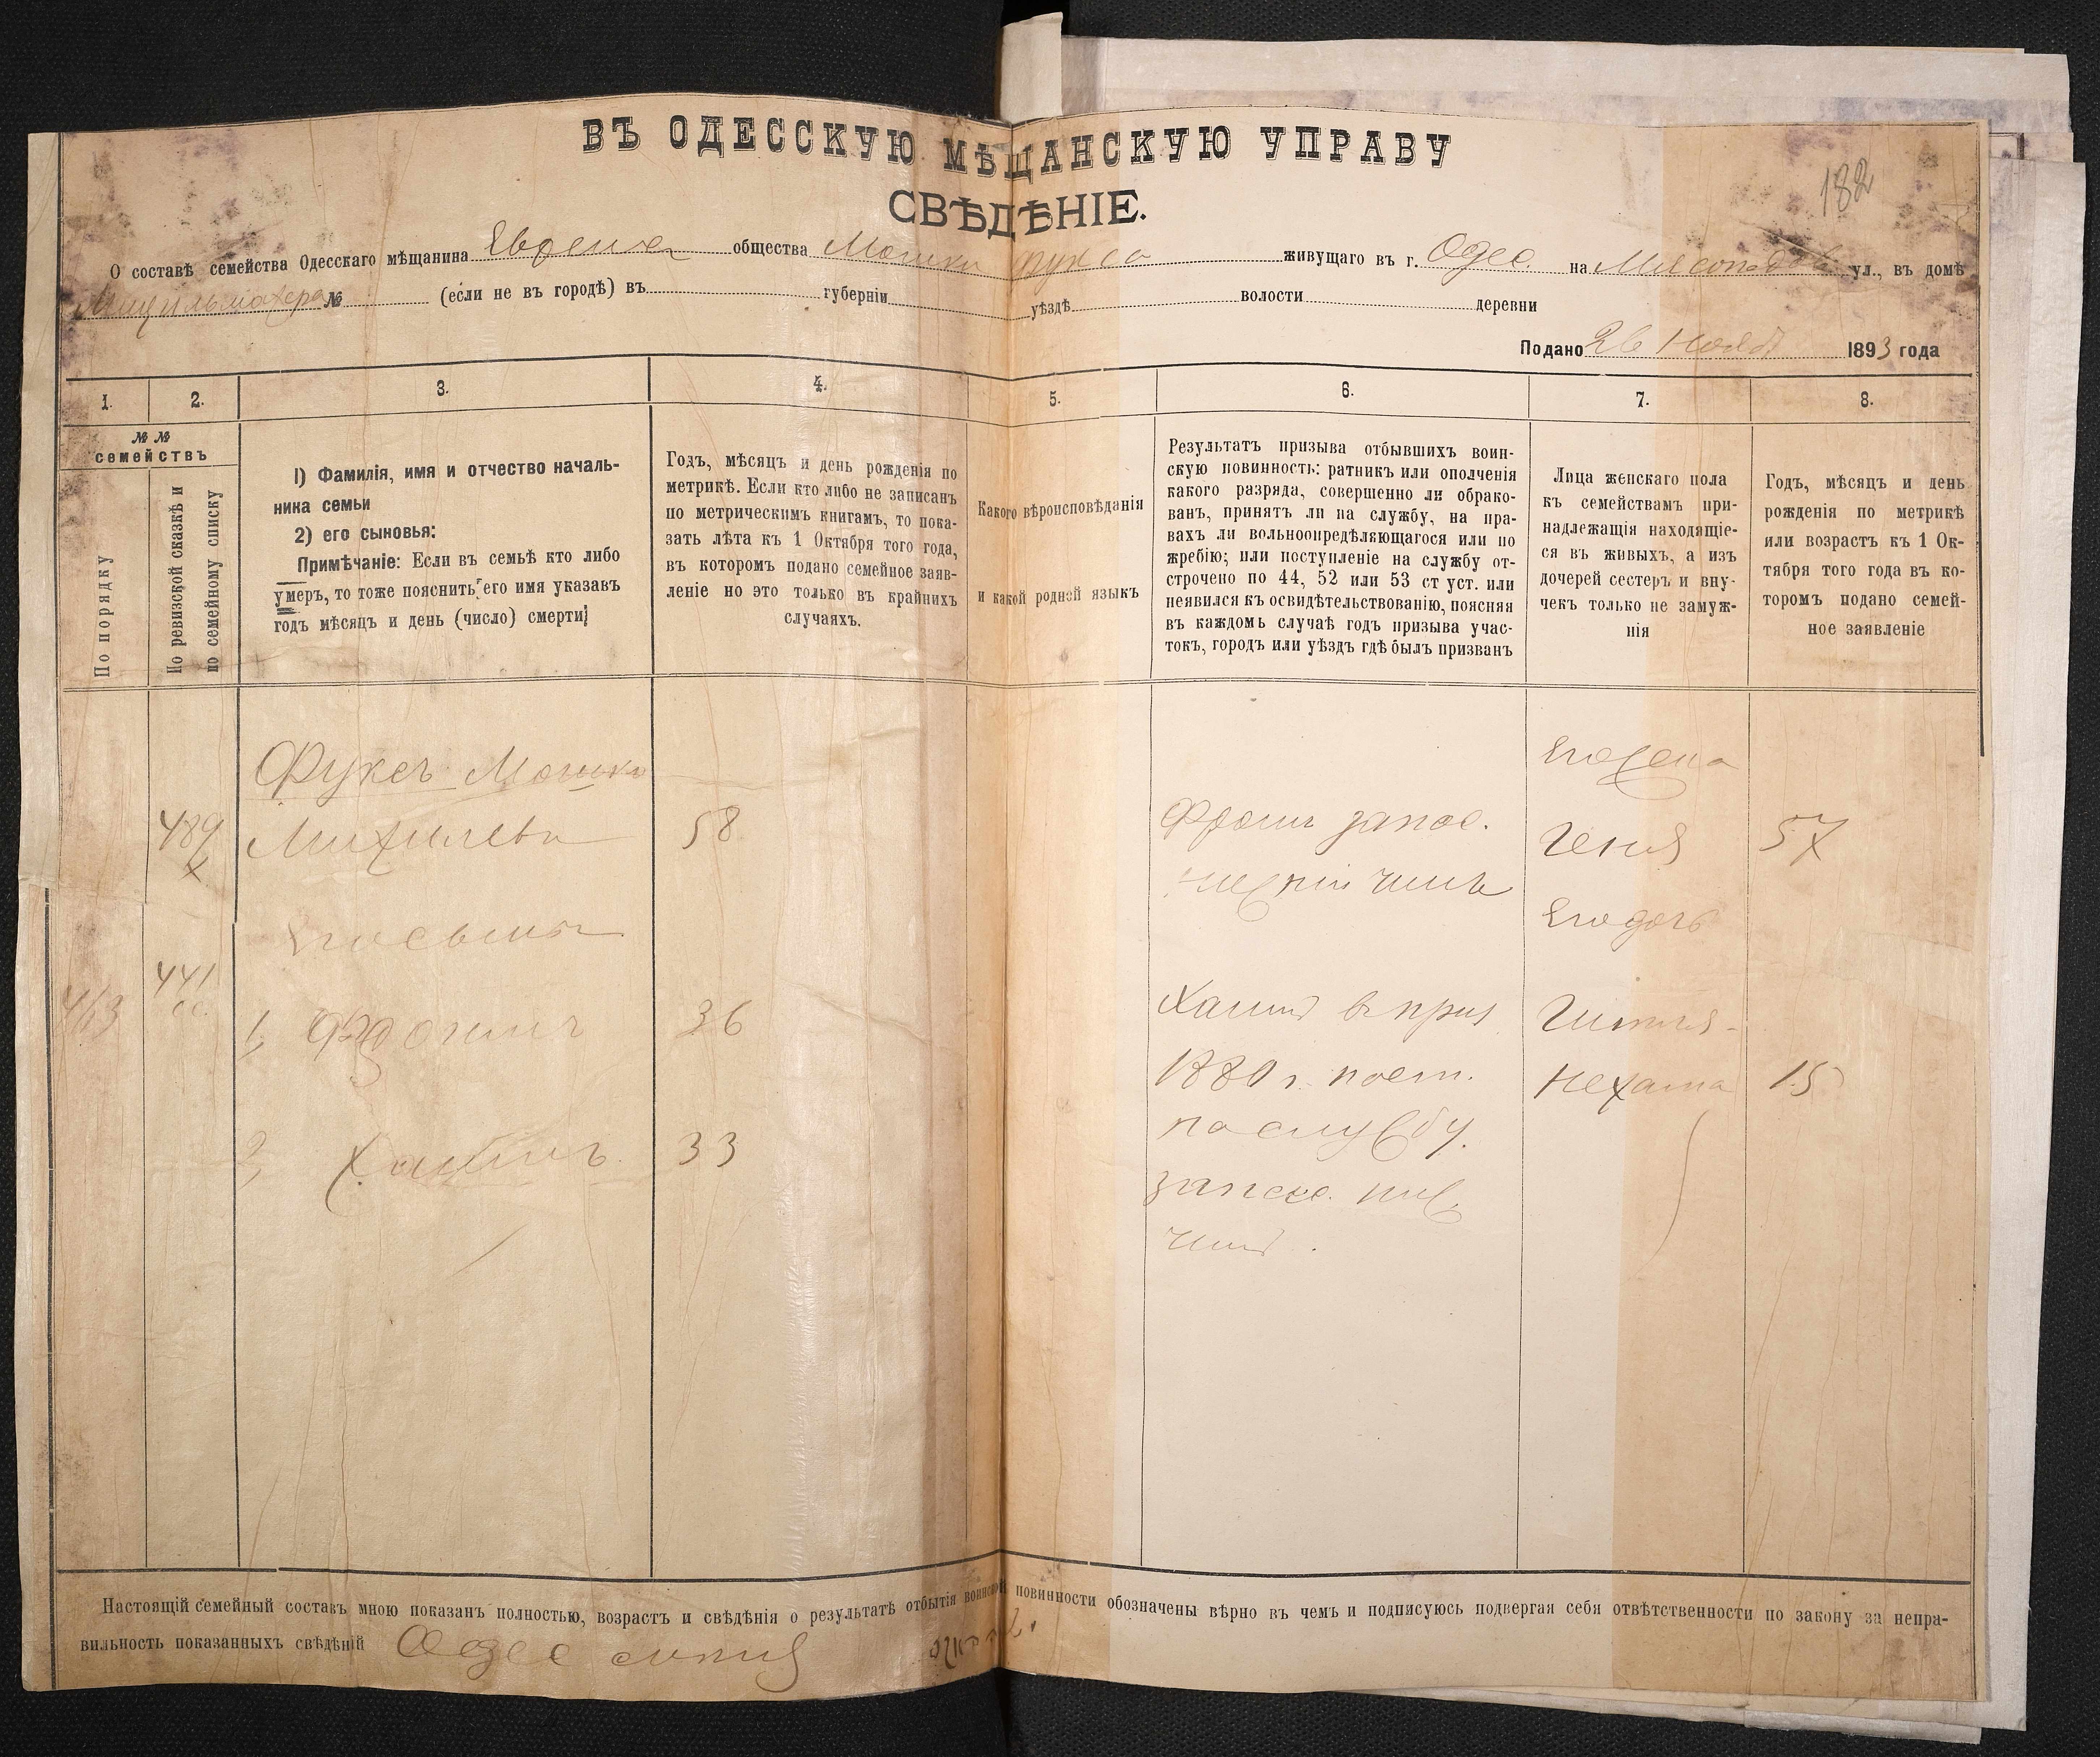 ВЪ ОДЕССКУЮ МѢЩАНСКУЮ УПРАВУ
СВѢДѢНІЕ.
182
О составѣ семейства Одесскаго мѣщанина общества Мошки Фукса живущаго въ г. Одес. на ул., въ домѣ
№ (если не въ городѣ) въ губерніи уѣздѣ волости деревни
Подано 26 Нояб 1893 года
1. 2. 3. 4. 5. 6. 7. 8.
№№
семействъ
По порядку
По ревизской сказкѣ и
по семейному списку
1) Фамилія, имя и отчество началь-
ника семьи
2) его сыновья:
Примѣчаніе: Если въ семьѣ кто либо
умеръ, то тоже пояснить его имя указавъ
годъ мѣсяцъ и день (число) смерти
Годъ, мѣсяцъ и день рожденія по
метрикѣ. Если кто либо не записанъ
по метрическимъ книгамъ, то пока-
зать лѣта къ 1 Октября того года,
въ которомъ подано семейное заяв-
леніе но это только въ крайнихъ
случаяхъ.
Какого вѣроисповѣданія
и какой родной языкъ
Результатъ призыва отбывшихъ воин-
скую повинность: ратникъ или ополченія
какого разряда, совершенно ли обрако-
ванъ, принятъ ли на службу, на пра-
вахъ ли вольноопредѣляющагося или по
жребію; или поступленіе на службу от-
строчено по 44, 52 или 53 ст уст. или
неявился къ освидѣтельствованію, поясняя
въ каждомъ случаѣ годъ призыва учас-
токъ, городъ или уѣздъ гдѣ былъ призванъ
Лица женскаго пола
къ семействамъ при-
надлежащія находящіе-
ся въ живыхъ, а изъ
дочерей сестеръ и вну-
чекъ только не замуж-
нія
Годъ, мѣсяцъ и день
рожденія по метрикѣ
или возрастъ къ 1 Ок-
тября того года въ ко-
торомъ подано семей-
ное заявленіе
Фуксъ Мошка
489 Михилевъ 58
Его сынъ
463 441
1, Фроимъ 36
2, Хаимъ 33
Фроим запас.
нижній чинъ
Хаимъ в приз
1880 г. пост.
на службу.
запас. ниж.
чинъ.
Его жена
Геня 57
Его дочь
Гитля-
Нехама 15
Настоящій семейный составъ мною показанъ полностью, возрастъ и свѣдѣнія о результатѣ отбытія воинской повинности обозначены вѣрно въ чемъ и подписуюсь подвергая себя отвѣтственности по закону за непра-
вильность показанныхъ свѣдѣній